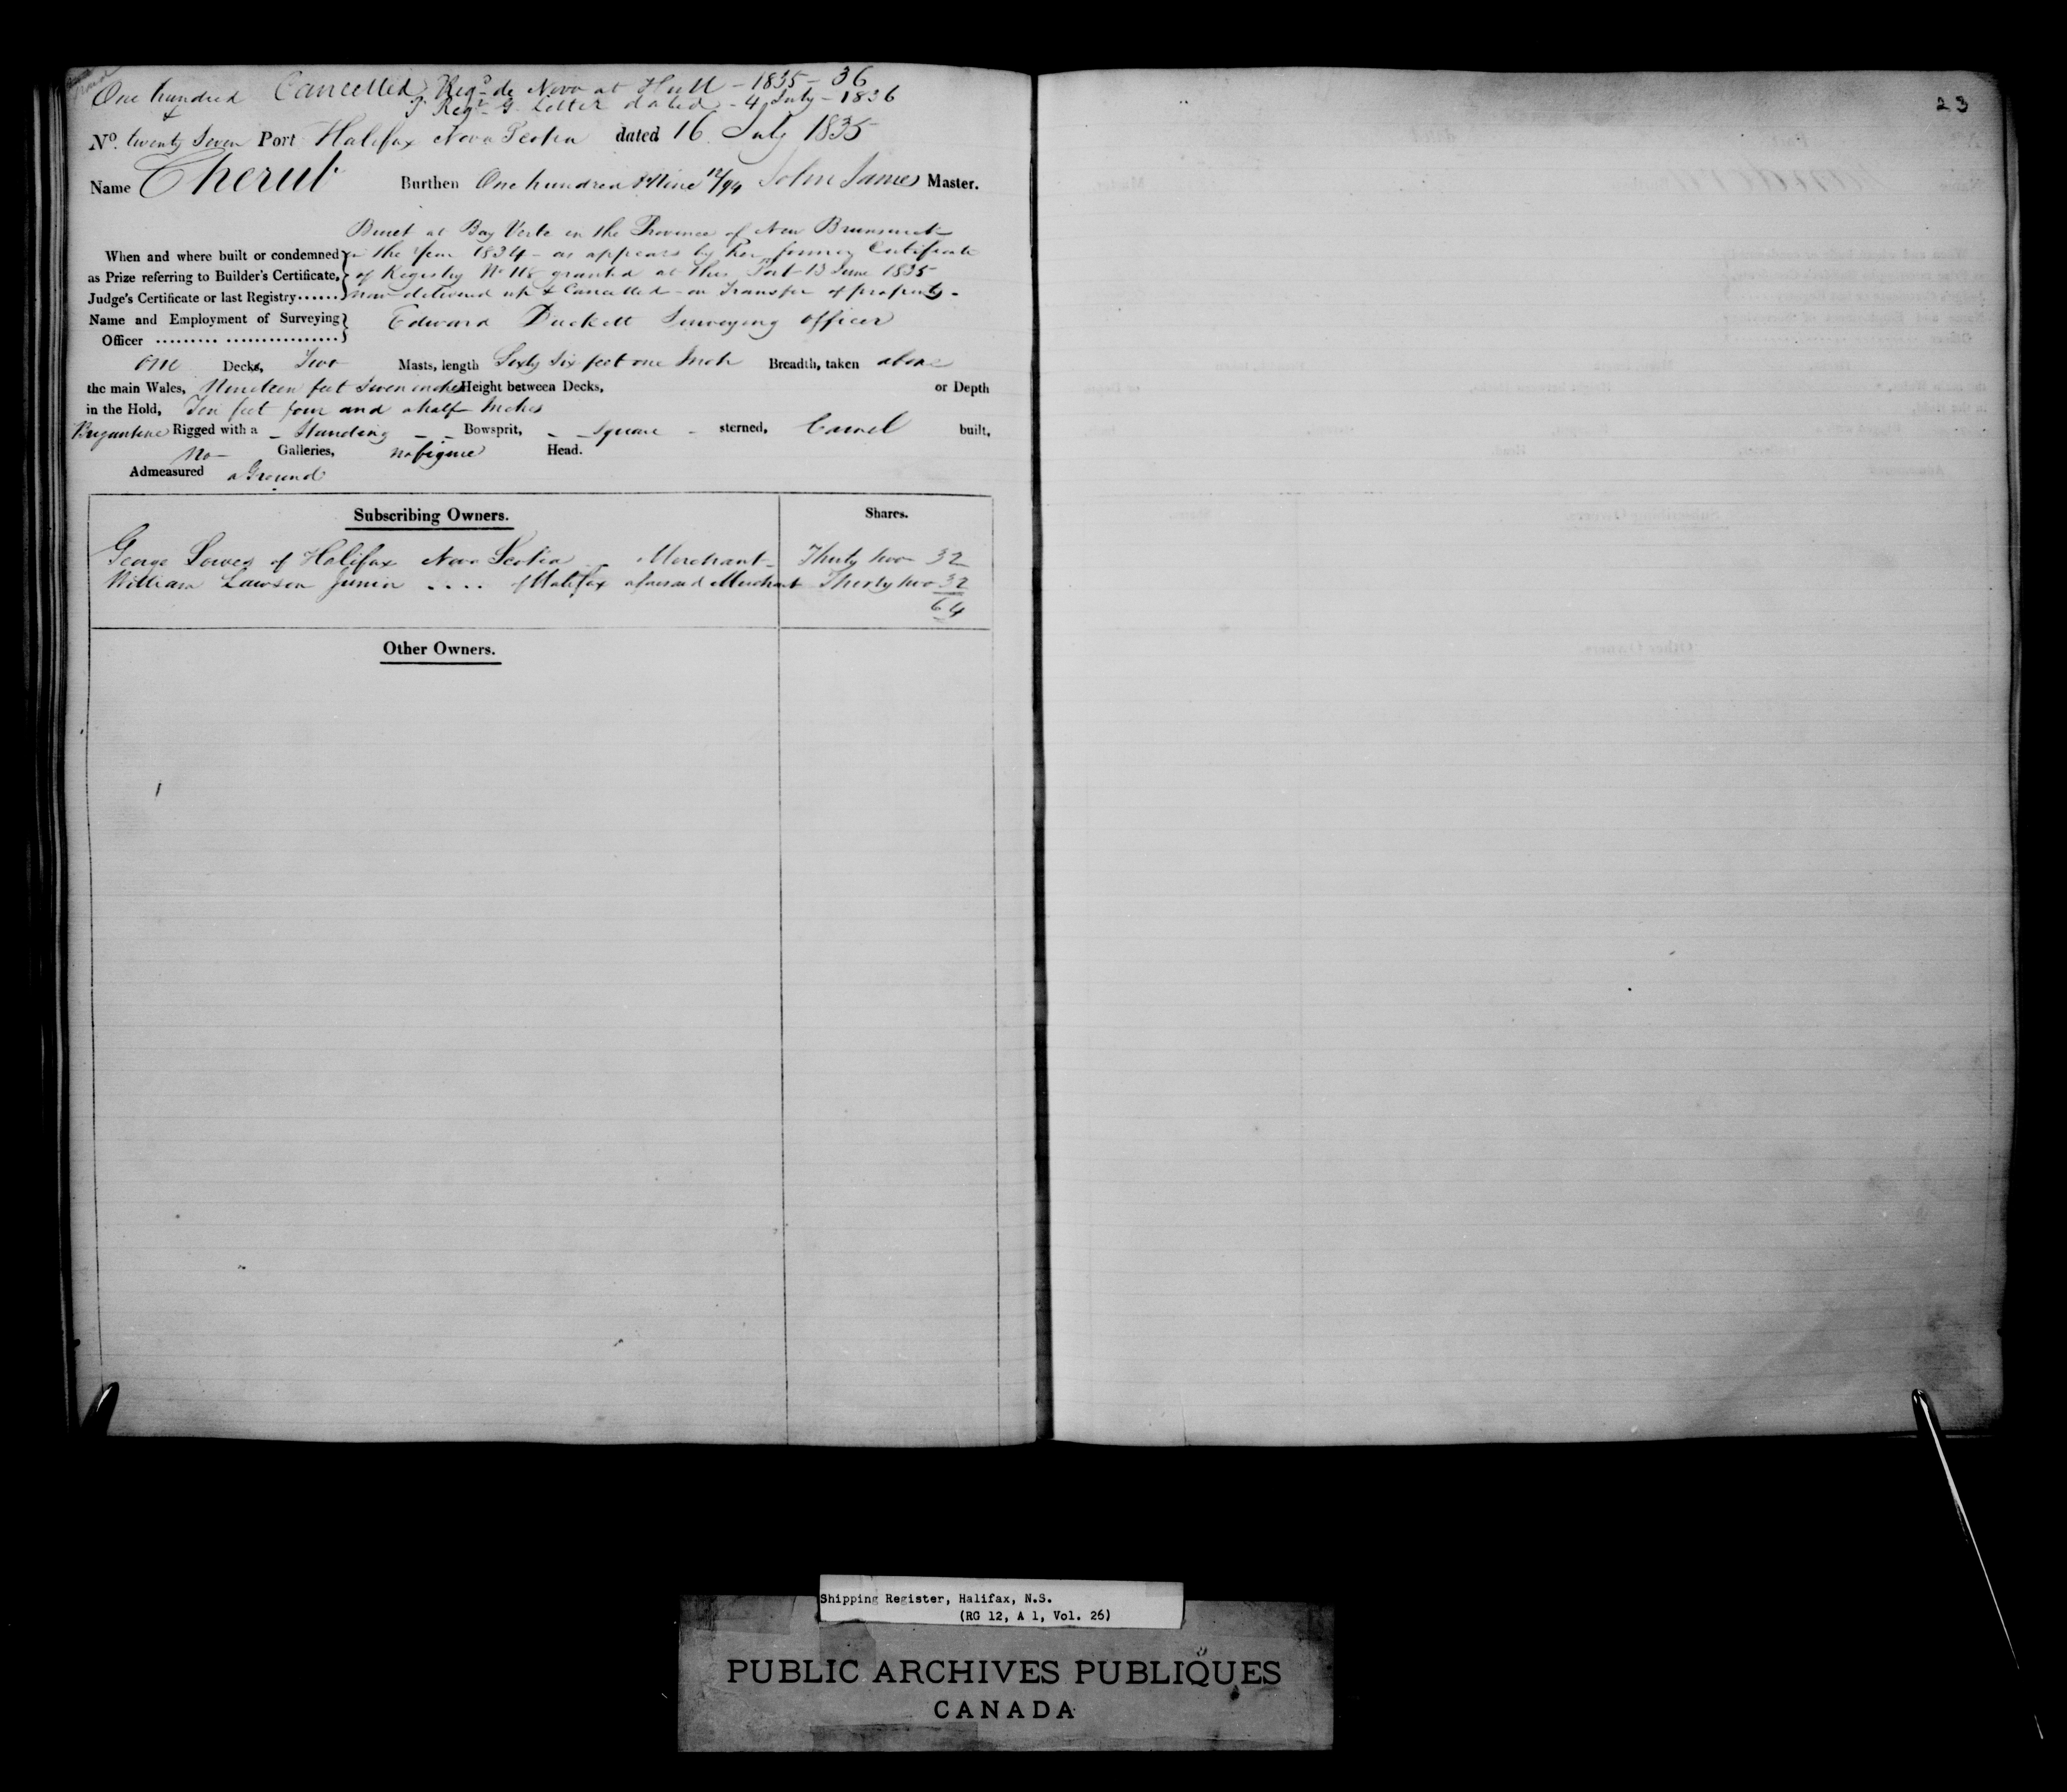 One hundred Cancelled Regd de Novo at Hull - 1835 - 36
& P Regr G. Letter dated - 4 July - 1836
No. twenty Seven Port Halifax Nova Scotia dated 16 July 1835
Name Cherub Burthen One hundred & Nine 12/94 John James Master.
Built at Bay Verte in the Province of New Brunswick
When and where built or condemned in the Year 1834 - as appears by her former Certificate
as Prize referring to Builder's Certificate, of Registry No 118 granted at this Port 13 June 1835
Judge's Certificate or last Registry...... now delivered up & Cancelled - on Transfer of property -
Name and Employment of Surveying Edward Duckett Surveying Officer
Officer ......... ................
One Decks, Two Masts, length Sixty Six feet one Inch Breadth, taken above
the main Wales, Nineteen feet Seven inches Height between Decks, or Depth
in the Hold, Ten feet four and a half Inches
Brigantine Rigged with a - Standing - - Bowsprit, - - Square - sterned, Carvel built,
No - Galleries, no figure Head.
Admeasured a Ground
Subscribing Owners. Shares.
George Lowes of Halifax Nova Scotia - Merchant - Thirty two 32
William Lawson Junior .... of Halifax aforesaid Merchant Thirty two 32
64
Other Owners.
23
Shipping Register, Halifax, N.S.
(RG 12, A 1, Vol. 26)
PUBLIC ARCHIVES PUBLIQUES
CANADA